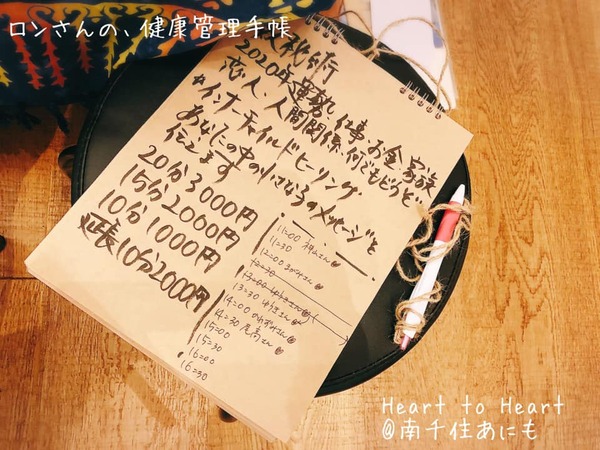 ロンさんの、健康管理手帳
占術
2020年運勢、仕事・お金・家族
恋人、人間関係、何でもどうぞ
インナーチャイルドヒーリング
あなたの中の小さな子のメッセージを
伝えます
20分3000円
15分2000円
10分1000円
延長10分2000円
11=00
11=30
12=00
12=30
13=00
13=30
14=00
14=30
15=00
15=30
16=00
16=30
Heart to Heart
@南千住あにも